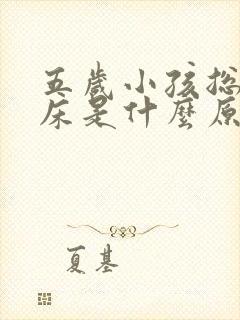 五歲小孩总
床是什麼原
夏基